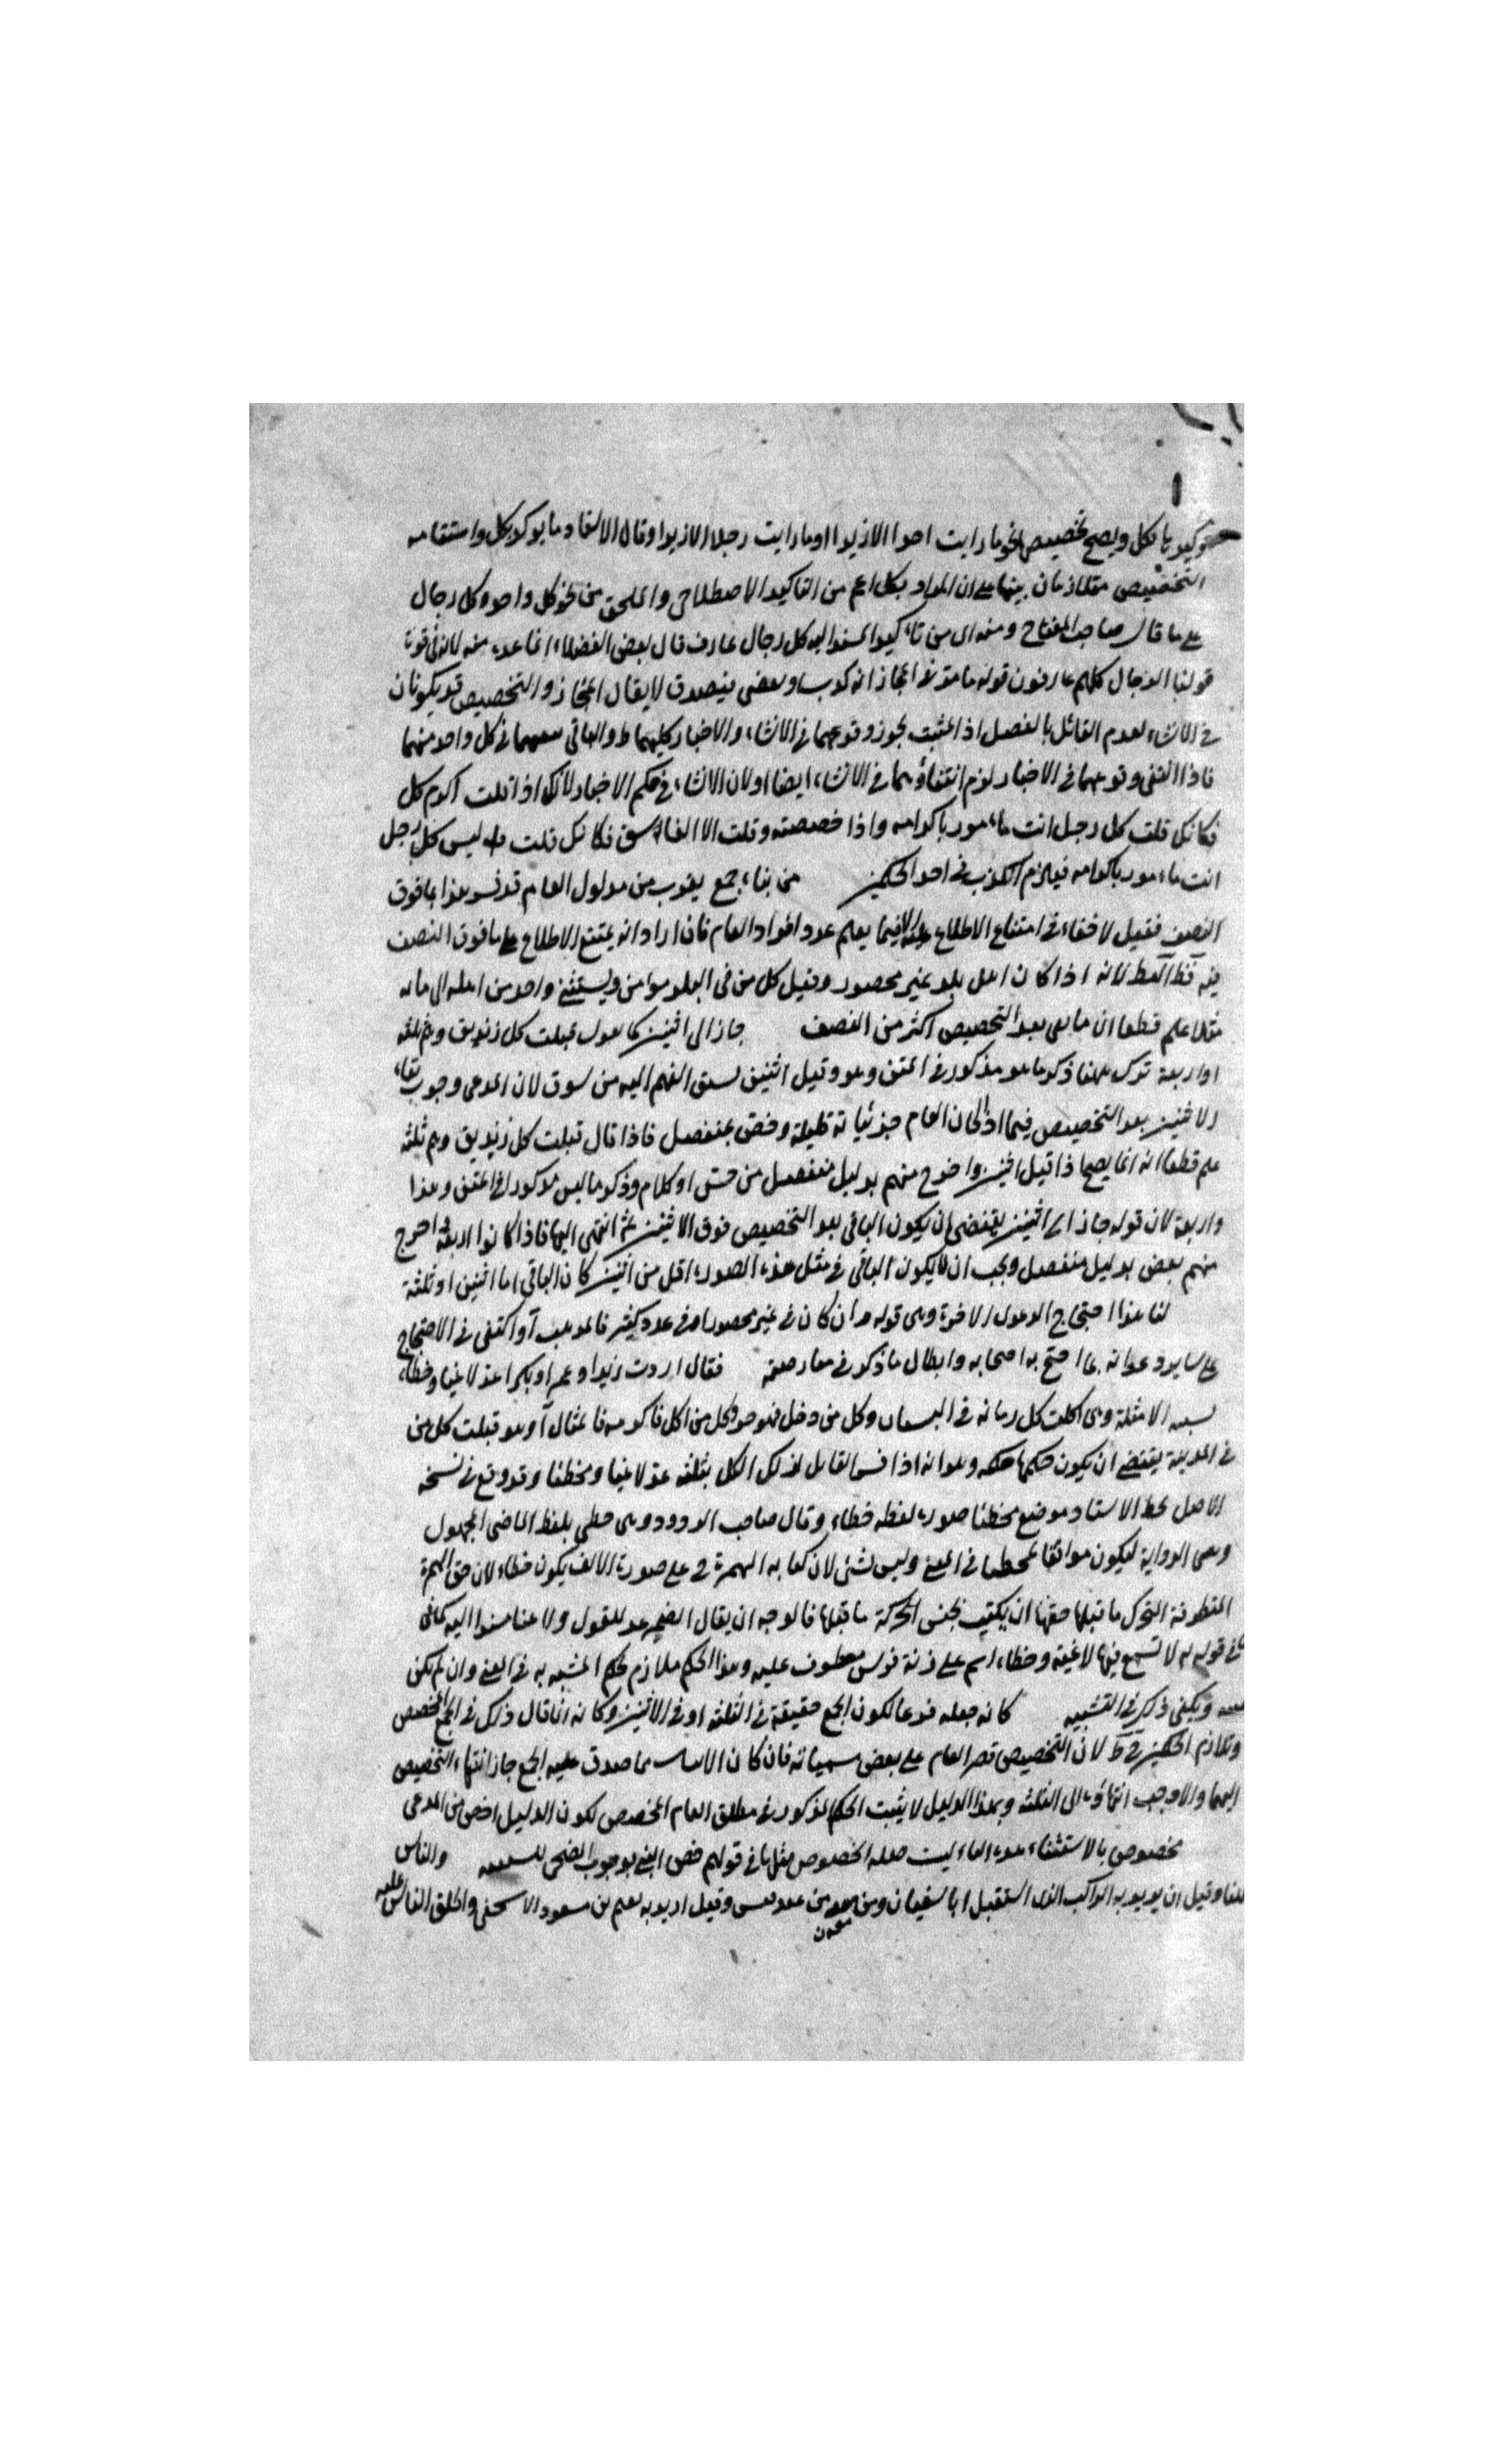 توكيد بالكل ويصح تخصيص نحو ما رايت احدا الا زيدا او ما رايت رجلا الا زيدا وقال الالفاد ما يوكد بكل واستقامه
التخصيص متلازمان بينهما على ان المراد بكل اعم من التاكيد الاصطلاحى والملحق من نحو كل واحد وكل رجال
على ما قال صاحب المفتاح ومنه اى من تاكيد المسند اليه كل رجال عارف قال بعض الفضلاء انما عده منه لانه فى قوة
قولنا الرجال كلهم عارفون قوله ما مر فى المجاز انه كذب وبعضى فيصدق لا يقال المجاز والتخصيص قد يكونان
فى الانشاء لعدم القائل بالفصل اذ المثبت يجوز وقوعهما فى الانشاء والاخبار كليهما والنافى فى كل واحد منهما
فاذا انتفى وقوعهما فى الاخبار لزم انتفاؤهما فى الانشاء ايضا او لان الانشاء فى حكم الاخبار لانك اذا قلت اكرم كل
فكانك قلت كل رجل انت مامور باكرامه واذا خصصته وقلت الا الفاسق فكانك قلت ليس كل رجل
انت مامور باكرامه فيلزم الكذب فى احد الحكمين من بناء جمع يقرب من مدلول العام قد فسر هذا بما فوق
النصف فقيل لا خفاء فى امتناع الاطلاع عليه الا فيما يعلم عدد افراد العام فان اراد انه يمتنع الاطلاع على ما فوق النصف
فيه لانه اذا كان اهل بلد غير محصور وقيل كل من فى البلد مؤمن ويستثنى واحد من اهله الى مائه
مثلا علم قطعا ان ما بقى بعد التخصيص اكثر من النصف جاز الى اثنين كما تقول قتلت كل زنديق وهم ثلثه
او اربعة ترك ههنا ذكر ما هو مذكور فى المتن وهو وقيل اثنين لسبق الفهم اليه من سوق لان المدعى وجوب بقاء
الاثنين بعد التخصيص فيما اذا كان العام جزئياته قليلة وخص بمنفصل فاذا قال قتلت كل زنديق وهم ثلثه
علم قطعا انه انما يصح اذا قتل اثنين واخرج منهم بدليل منفصل من حس او كلام وذكر ما ليس مذكورا فى المتن وهذا
واربعة لان قوله جاز الى اثنين يقتضى ان يكون الباقى بعد التخصيص فوق الاثنين ثم انتهى اليها فاذا كانوا اربعة اخرج
منهم بعض بدليل منفصل ويجب ان لا يكون الباقى فى مثل هذه الصورة اقل من اثنين كان الباقى اما اثنين او ثلثة
لنا هذا احتجاج الدعوى الاخرة وهى قوله وان كان فى غير محصور او فى عدد كثير فالمذهب آ واكتفى فى الاحتجاج
على ساير دعواته بما احتج به اصحابه وابطال ما ذكر فى معارضته فقال اردت زيدا وعمرا وبكرا عد لاغيا وخطاء
الامثلة وهى اكلت كل رمانه فى البستان وكل من دخل فهو حر وكل من اكل فاكرمه فالمثال آ وهو قتلت كل من
فى المدينة يقتضى ان يكون حكمها حكمه وهو انه اذا فسر القائل لذلك الكل بثلثه عد لاغيا ومخطئا وقد وقع فى نسخه
الاصل بخط الاستاد موضع مخطئا صورة لفظه خطاء وقال صاحب الردود وهى خطى بلفظ الماضى المجهول
وهى الرواية ليكون موافقا فى المعنى وليس بشئ لان كتابه الهمزة ح على صورة الالف يكون خطاء لان حق الهمزة
المتطرفة المتحرك ما قبلها حقها ان يكتب بجنس الحركة ما قبلها فالوجه ان يقال الضمير عد للقول ولاغيا مسندا اليه كما فى
فى قوله لا تسمع فيها لاغية وخطاء اسم على زنة فرس معطوف عليه وهذا الحكم ملازم لحكم المشبه به فى المعنى وان لم يكن
ويكفى ذكره فى التشبيه كانه جعله فرعا لكون الجمع حقيقة فى الثلثه او فى الاثنين وكانه انما قال ذلك فى الجمع المخصص
وتلازم الحكمين لان التخصيص قصر العام على بعض مسمياته فان كان الاثنان مما صدق عليه الجمع جاز انتهاء التخصيص
اليهما والا وجب انتهاؤه الى الثلثه وبهذا الدليل لا يثبت الحكم المذكور فى مطلق العام المخصص لكون الدليل اخص من المدعى
مخصوص بالاستثناء هذه الباء ليست صلة الخصوص مثلها فى قولهم خص النبى بوجوب الضحى والناس
وقيل ان يريد به الراكب الذى استقبل ابا سفيان ومن معه من عبد قيس وقيل اريد به نعيم بن مسعود الاشجعى واطلق الناس عليه